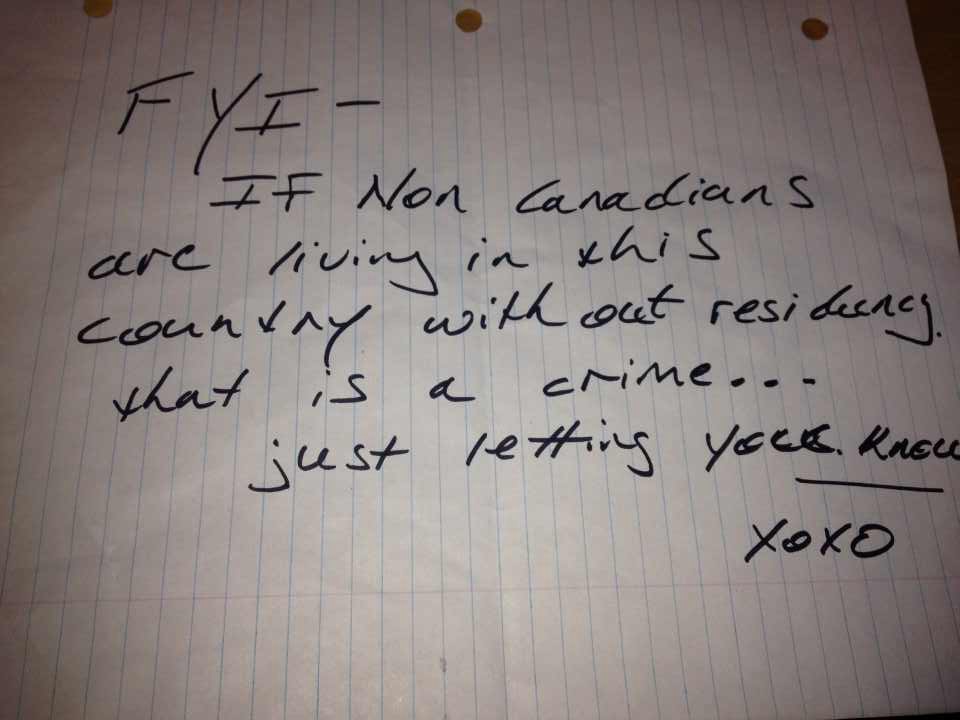 FYI -
IF Non Canadians
are living in this
country with out residency.
that is a crime...
just letting you. know
XOXO